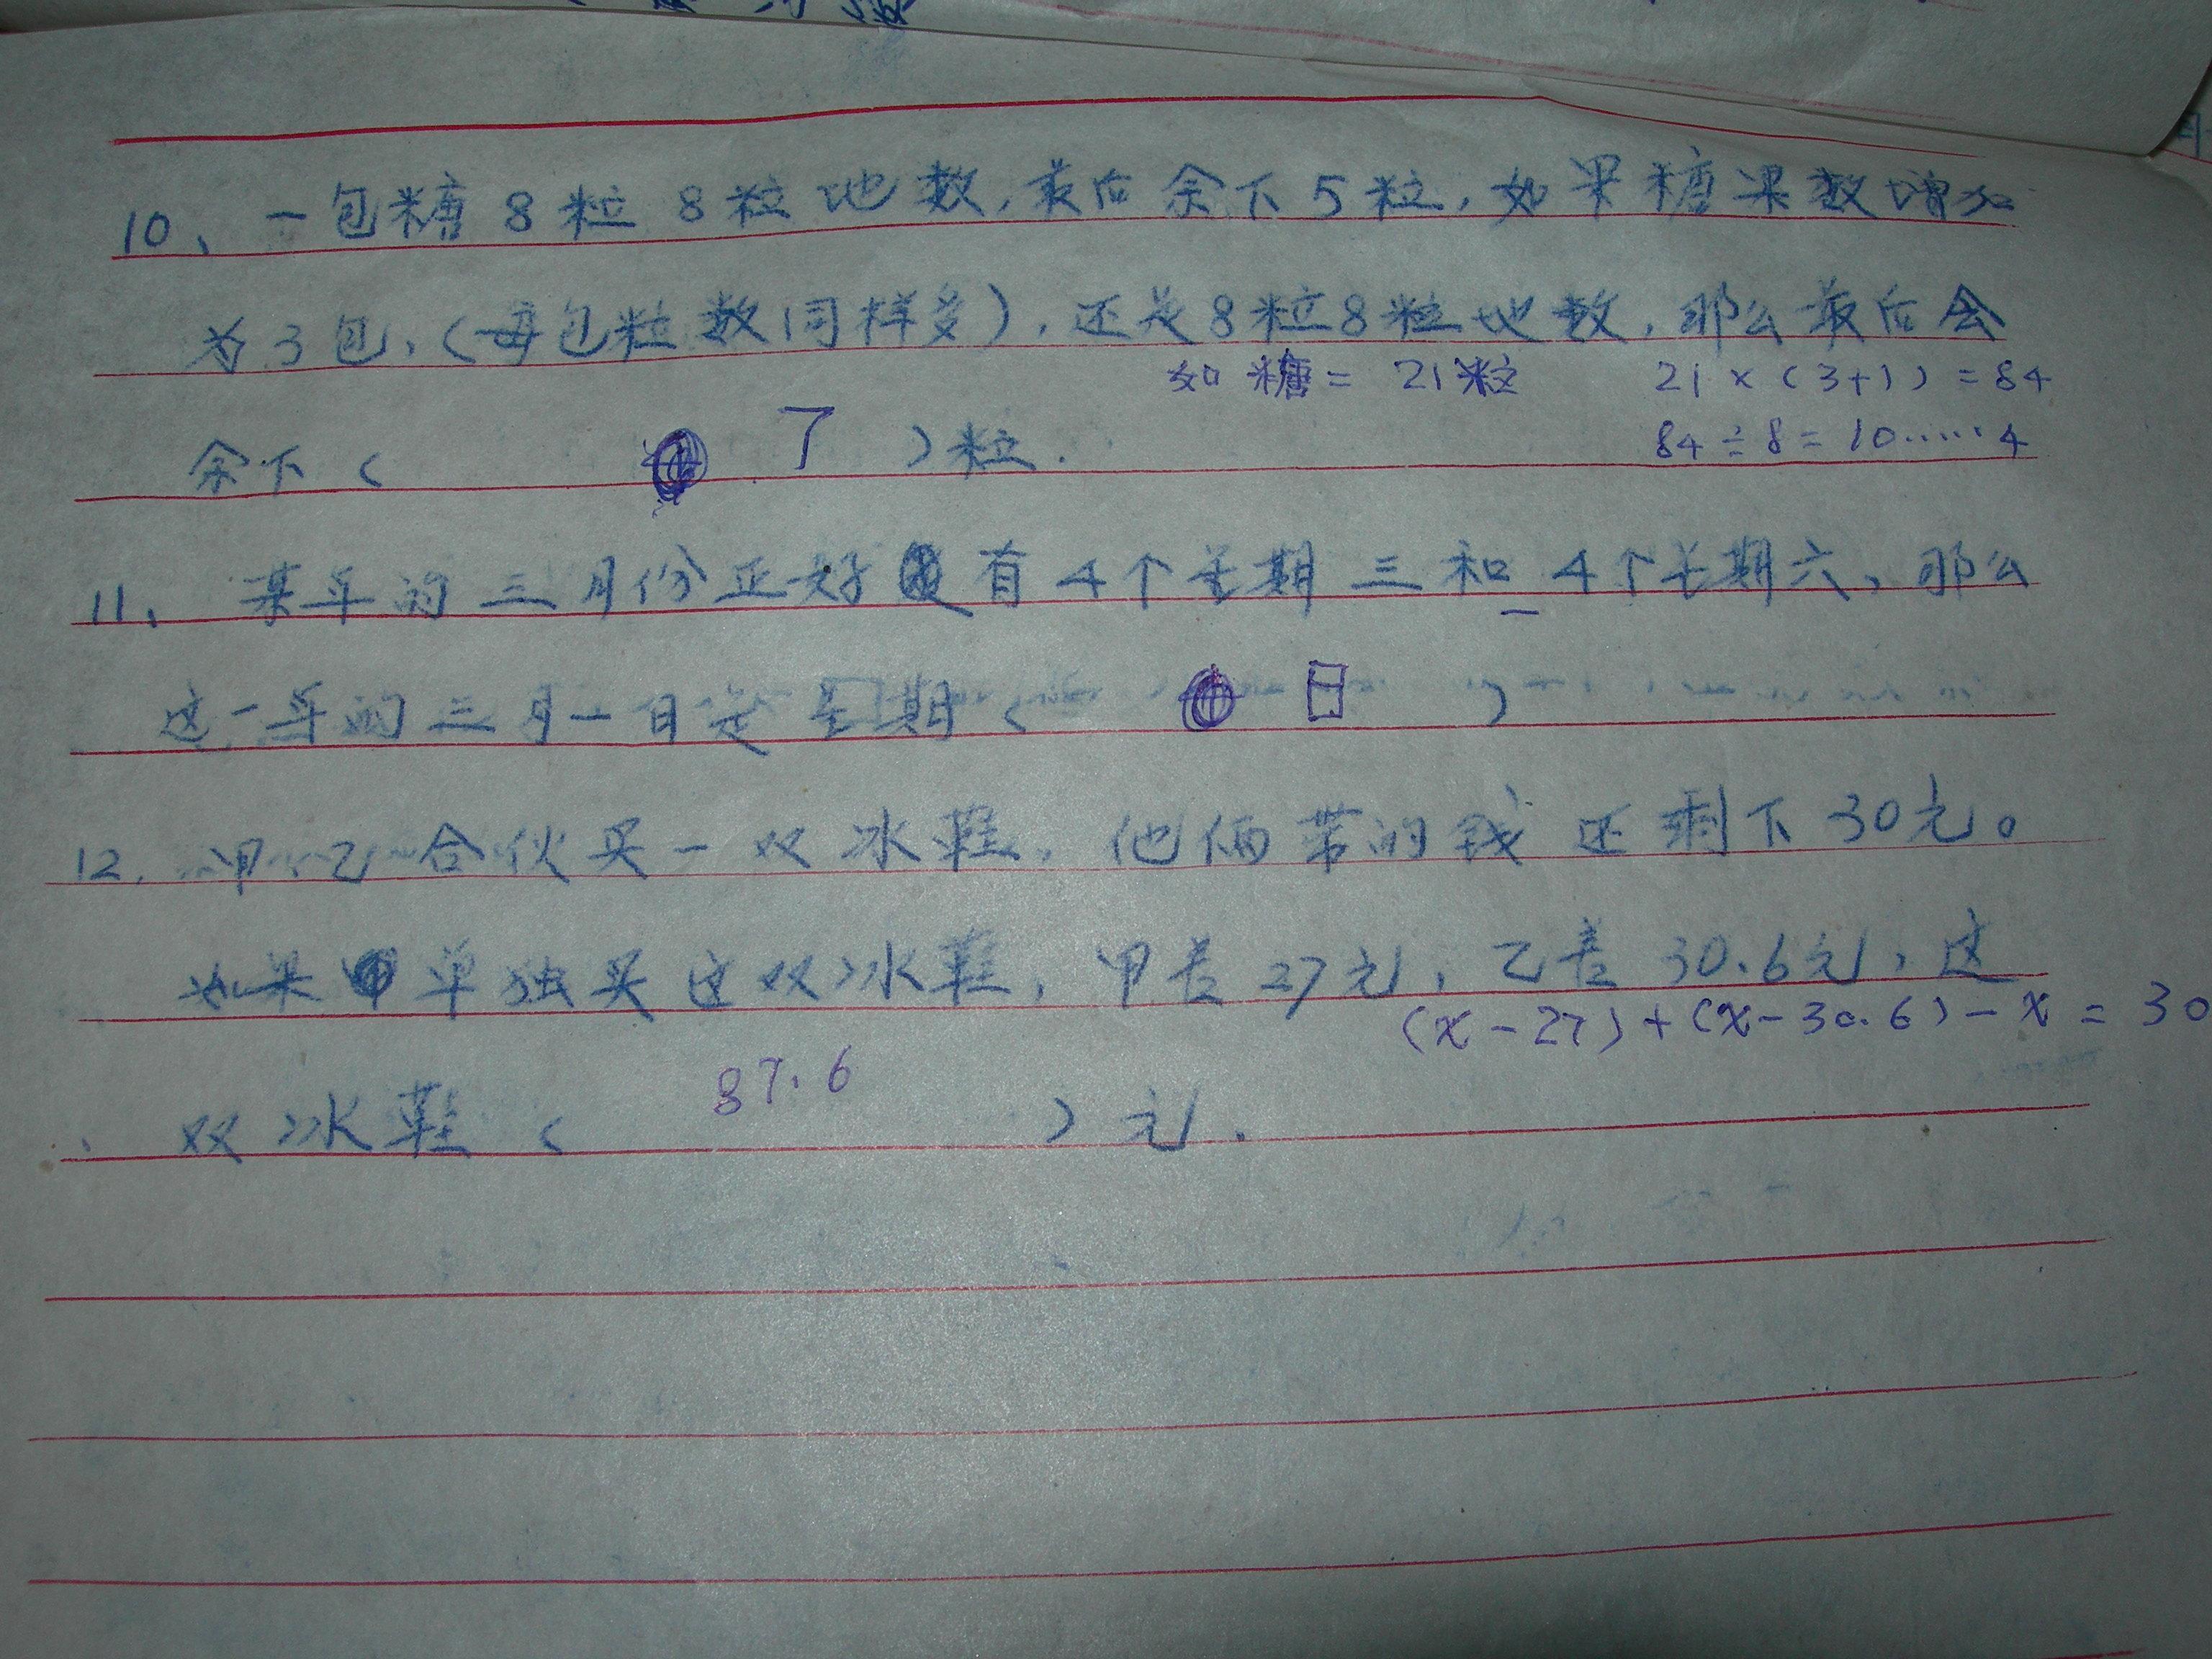 10、一包糖8粒8粒地数,最后余下5粒,如果糖果数增加
为3包,(每包粒数同样多),还是8粒8粒地数,那么最后会
如糖= 21粒 21×(3+1)=84
余下( 7 )粒.
84÷8=10……4
11、某年的三月份正好有4个星期三和4个星期六,那么
这一年的三月一日是星期( 日 )
12.甲、乙合伙买一双冰鞋,他俩带的钱还剩下30元。
如果单独买这双冰鞋,甲差27元,乙差30.6元,这
(x-27)+(x-30.6)-x=30
87.6
双冰鞋( )元.